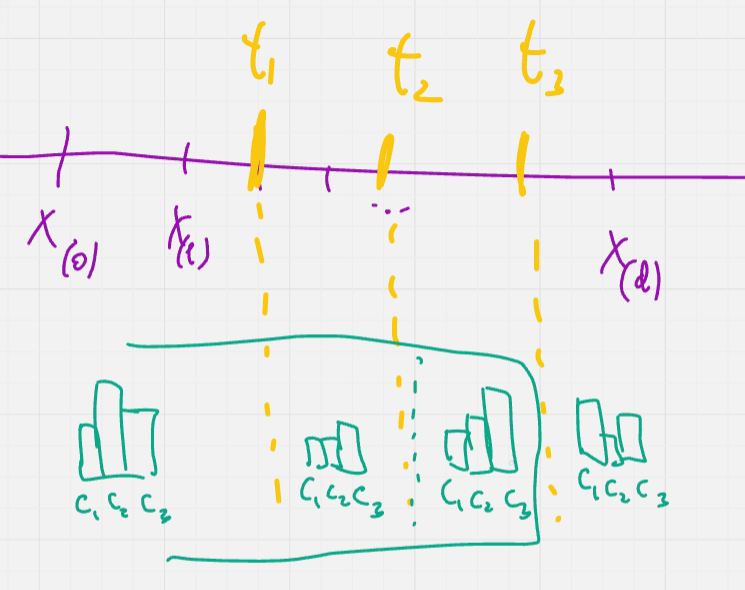 t₁ t₂ t₃
...
X₍₀₎ X₍₁₎ X₍d₎
C₁ C₂ C₃ C₁ C₂ C₃ C₁ C₂ C₃ C₁ C₂ C₃